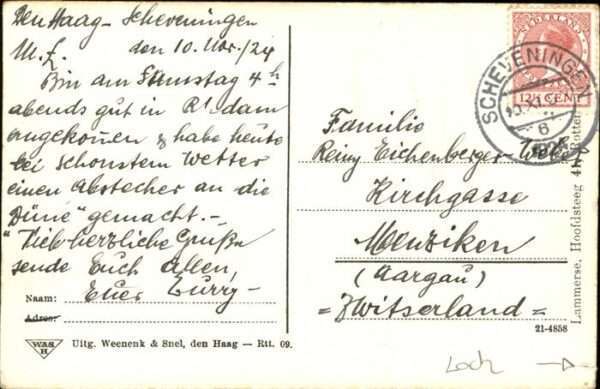 Den Haag - Scheveningen
M. L. den 10. Nov. / 24
Bin am Samstag 4h
abends gut in R'dam
angekommen & habe heute
bei schönstem Wetter
einen Abstecher an die
Düne gemacht. -
Vielherzliche Grüße
sende Euch allen,
Euer
Naam:
Adres:
WAS
H
Uitg. Weenenk & Snel, den Haag — Rtt. 09.
NEDERLAND
12½ CENT
SCHEVENINGEN
6
Familie
Reiny Eichenberger-Weber
Kirchgasse
Menziken
(Aargau)
= Zwitserland =
21-4858
Lammerse, Hoofdsteeg
Loch